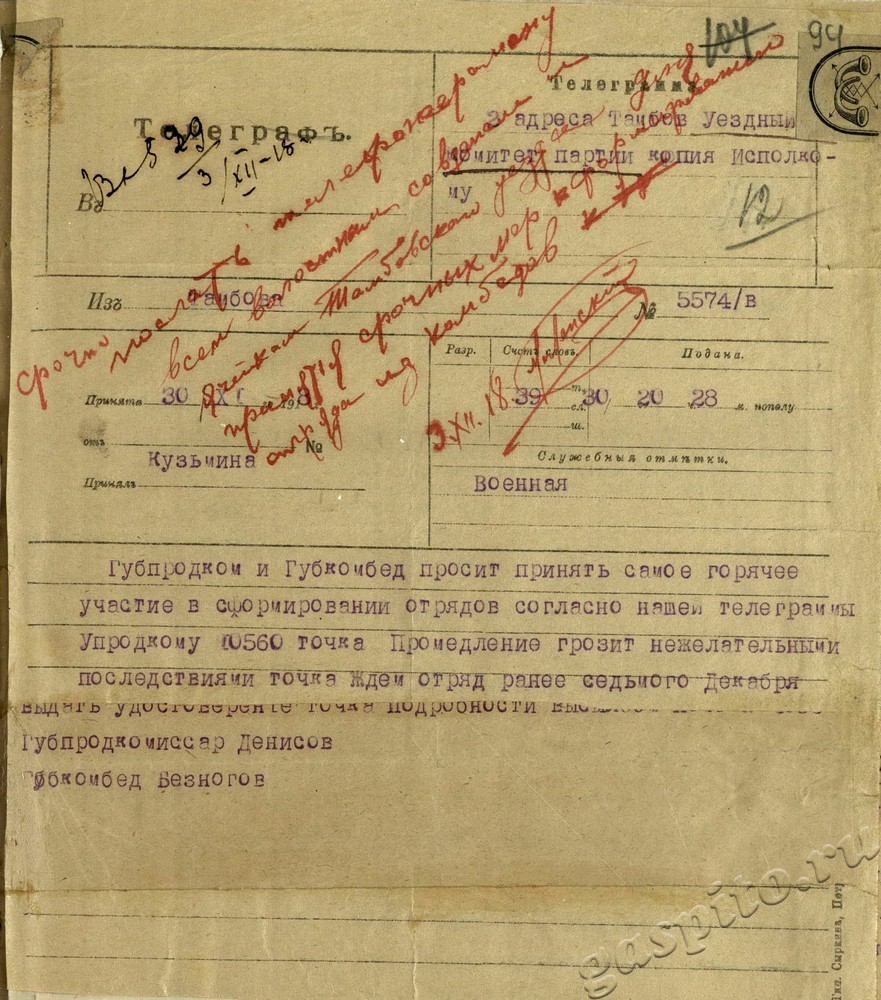 104 94
Телеграфъ.
Вх 5 29
3/XII-18
Въ
Телеграмма
3 адреса Тамбов Уездный
комитет партии копия Исполко-
му
12
срочно
послать телефонограмму
всем волостным советам и
ячейкам Тамбовского уезда
принятия срочных мер к формированию
отряда из комбедов
3.XII.18
Изъ Тамбова
№ 5574/в
Разр. Счетъ словъ. Подана.
Принята 30 XI 191 8
39 т. сл. ш. 30 20 28 м. пополу
отъ №
Кузьмина
Принялъ
Служебныя отмѣтки.
Военная
Губпродком и Губкомбед просит принять самое горячее
участие в сформировании отрядов согласно нашей телеграммы
Упродкому 10560 точка Промедление грозит нежелательными
последствиями точка Ждем отряд ранее седьмого Декабря
выдать удостоверенте точка подробности
Губпродкомиссар Денисов
Губкомбед Безногов
gaspito.ru
Сыркина, Пет